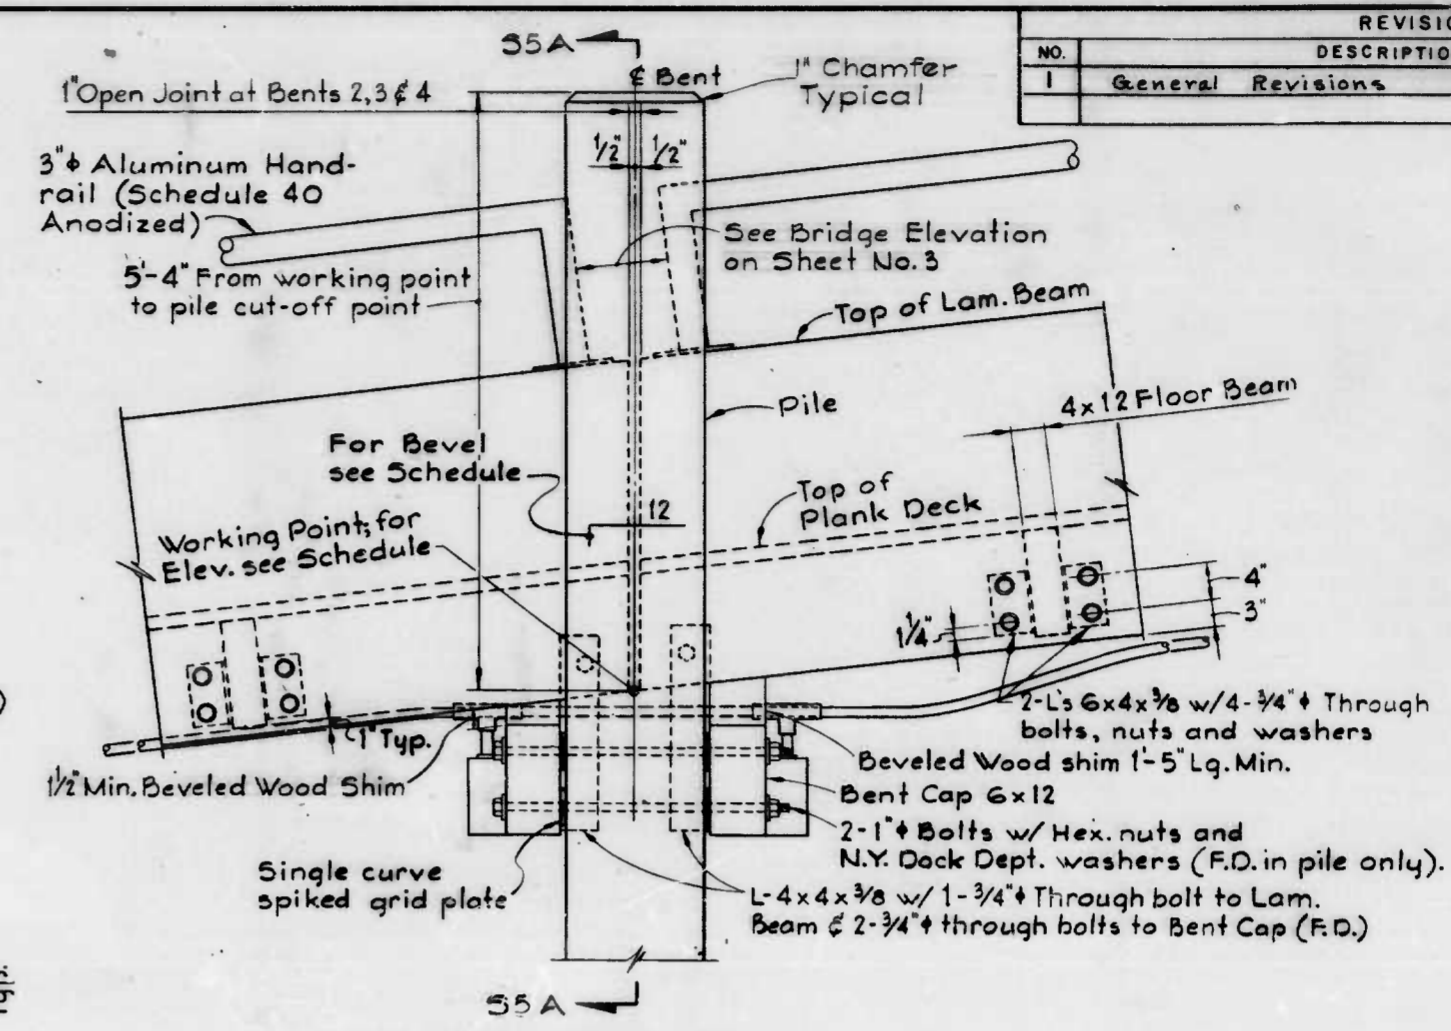 REVISIO
NO. DESCRIPTIO
1 General Revisions
S5A
1" Open Joint at Bents 2, 3 & 4
℄ Bent
1" Chamfer
Typical
1/2" 1/2"
3"ϕ Aluminum Hand-
rail (Schedule 40
Anodized)
See Bridge Elevation
on Sheet No. 3
5'-4" From working point
to pile cut-off point
Top of Lam. Beam
Pile
4x12 Floor Beam
For Bevel
see Schedule
12
Top of
Plank Deck
Working Point; for
Elev. see Schedule
4"
3"
1 1/4"
1" Typ.
1 1/2" Min. Beveled Wood Shim
2-L's 6x4x3/8 w/4-3/4"ϕ Through
bolts, nuts and washers
Beveled Wood shim 1'-5" Lg. Min.
Bent Cap 6x12
2-1"ϕ Bolts w/ Hex. nuts and
N.Y. Dock Dept. washers (F.D. in pile only).
Single curve
spiked grid plate
L-4x4x3/8 w/ 1-3/4"ϕ Through bolt to Lam.
Beam & 2-3/4"ϕ through bolts to Bent Cap (F.D.)
S5A